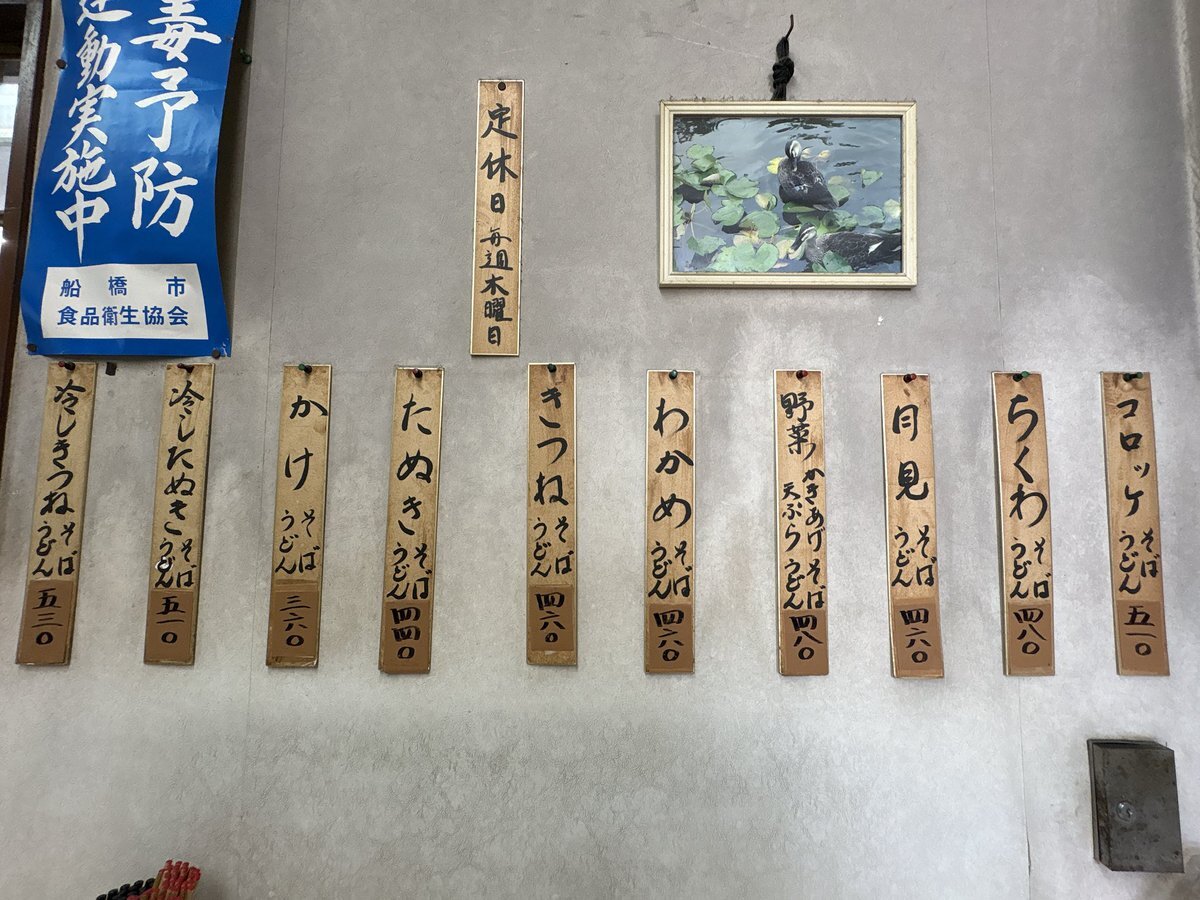 毒予防
運動実施中
船橋市
食品衛生協会
定休日 毎週木曜日
コロッケ そば うどん 五一〇
ちくわ そば うどん 四八〇
月見 そば うどん 四六〇
野菜 かきあげ 天ぷら そば うどん 四八〇
わかめ そば うどん 四六〇
きつね そば うどん 四六〇
たぬき そば うどん 四四〇
かけ そば うどん 三六〇
冷したぬき そば うどん 五一〇
冷しきつね そば うどん 五三〇